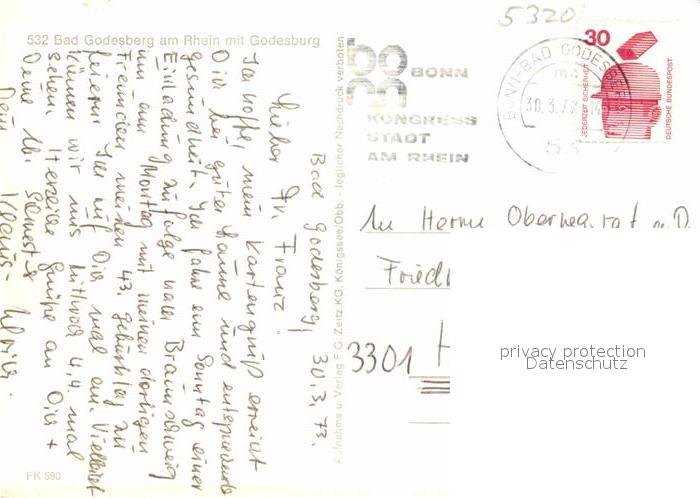 532 Bad Godesberg am Rhein mit Godesburg
Bad Godesberg, 30.3.73.
Lieber Dr. Franz.
Ich hoffe, mein Kartengruß erreicht
Dich bei guter Laune und entsprechende
Gesundheit. Ich fahre am Sonntag einer
Einladung zufolge nach Braunschweig
um am Montag mit meinen dortigen
Freunden meinen 43. Geburtstag zu
feiern. Ich ruf Dich mal an. Vielleicht
können wir uns Mittwoch 4.4. mal
sehen. Herzliche Grüße an Dich +
Deine lb.
Dein Klaus-
FK 590
Aufnahme u. Verlag F. G. Zeitz KG, Königssee/Obb. - Jeglicher Nachdruck verboten
5320
bonn BONN
KONGRESS
STADT
AM RHEIN
BONN-BAD GODESBERG
30.3.73
53
30
JEDERZEIT SICHERHEIT
DEUTSCHE BUNDESPOST
An Herrn
Friedr
3301
privacy protection
Datenschutz